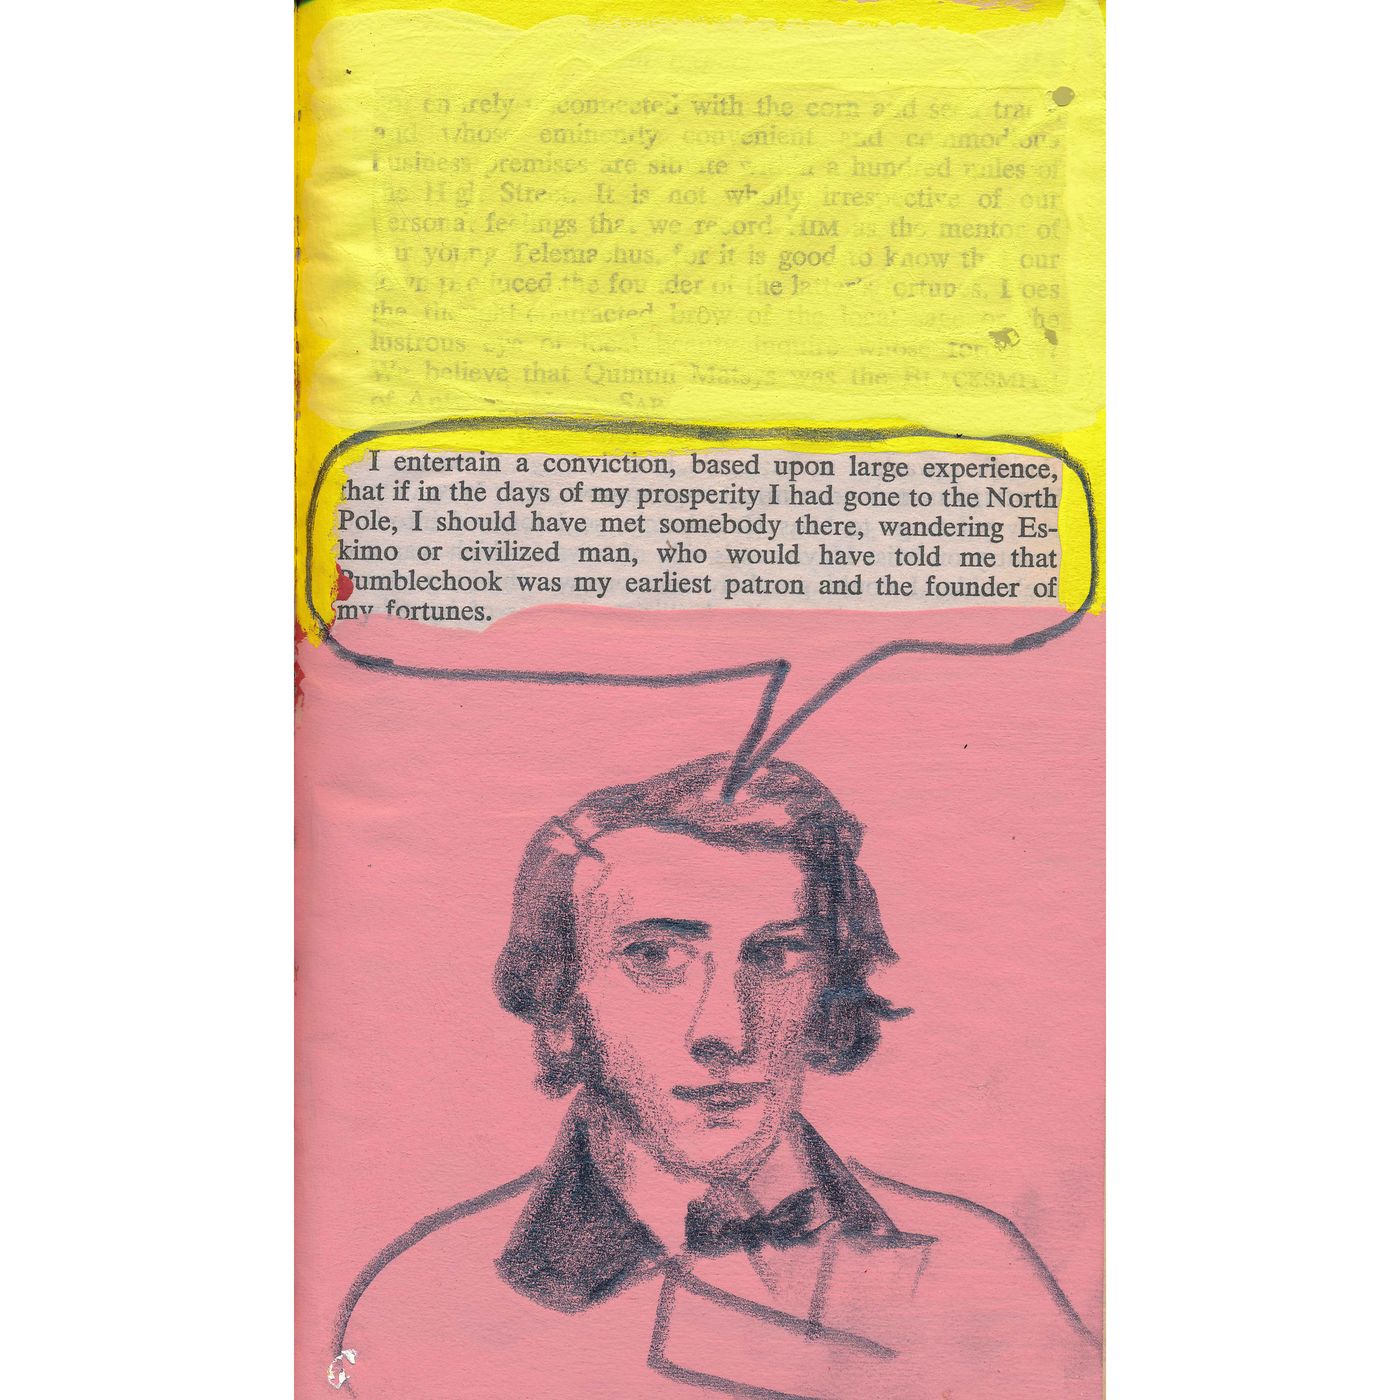 connected with the corn and
and whose eminently convenient and commodious
business premises are situate within a hundred miles of
the High Street. It is not wholly irrespective of our
personal feelings that we record HIM as the mentor of
our young Telemachus, for it is good to know that our
town produced the founder of the latter's fortunes. Does
the brow of the local sage or the
lustrous eye of local
We believe that Quintin Matsys was the BLACKSMITH
of
I entertain a conviction, based upon large experience,
that if in the days of my prosperity I had gone to the North
Pole, I should have met somebody there, wandering Es-
kimo or civilized man, who would have told me that
Pumblechook was my earliest patron and the founder of
my fortunes.